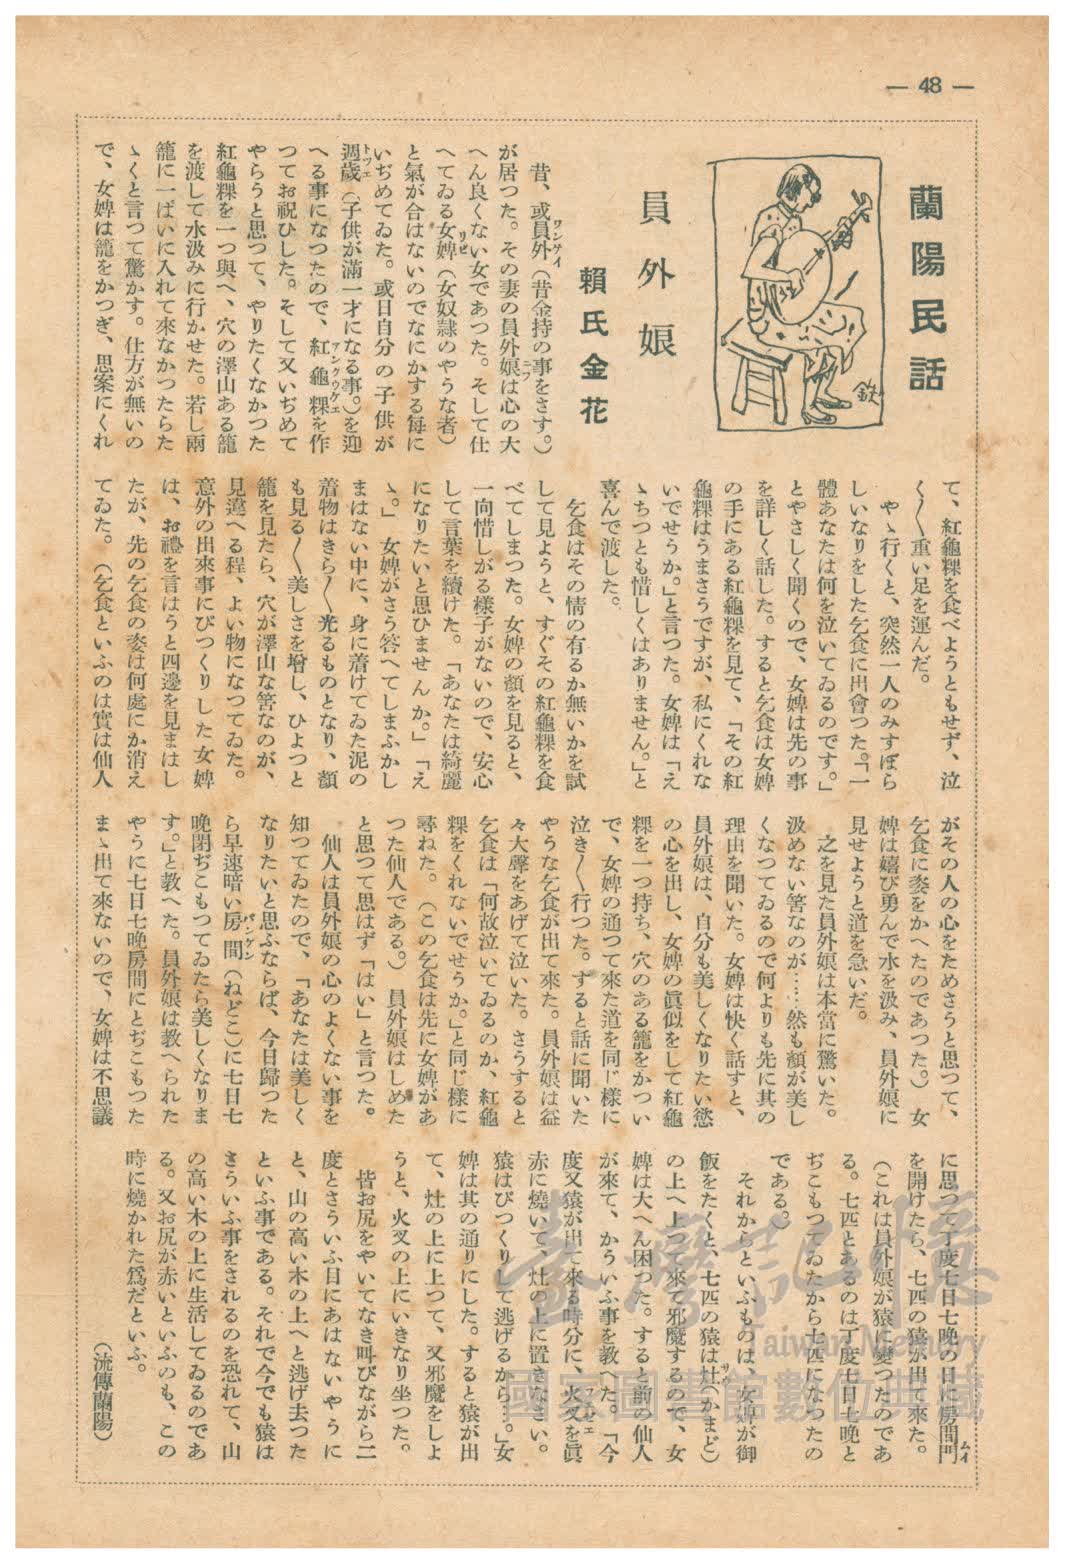 — 48 —
蘭陽民話
鉄
員外娘
賴氏金花
昔、或員外（昔金持の事をさす。）
が居つた。その妻の員外娘は心の大
へん良くない女であつた。そして仕
へてゐる女婢（女奴隷のやうな者）
と氣が合はないのでなにかする每に
いぢめてゐた。或日自分の子供が
週歲（子供が滿一才になる事。）を迎
へる事になつたので、紅龜粿を作
つてお祝ひした。そして又いぢめて
やらうと思つて、やりたくなかつた
紅龜粿を一つ與へ、穴の澤山ある籠
を渡して水汲みに行かせた。若し兩
籠に一ぱいに入れて來なかつたらた
ゝくと言つて驚かす。仕方が無いの
で、女婢は籠をかつぎ、思案にくれ
て、紅龜粿を食べようともせず、泣
く〳〵重い足を運んだ。
やゝ行くと、突然一人のみすぼら
しいなりをした乞食に出會つた。「一
體あなたは何を泣いてゐるのです。」
とやさしく聞くので、女婢は先の事
を詳しく話した。すると乞食は女婢
の手にある紅龜粿を見て、「その紅
龜粿はうまさうですが、私にくれな
いでせうか。」と言つた。女婢は「え
ゝちつとも惜しくはありません。」と
喜んで渡した。
乞食はその情の有るか無いかを試
して見ようと、すぐその紅龜粿を食
べてしまつた。女婢の顏を見ると、
一向惜しがる樣子がないので、安心
して言葉を續けた。「あなたは綺麗
になりたいと思ひませんか。」「え
ゝ。」女婢がさう答へてしまふかし
まはない中に、身に着けてゐた泥の
着物はきら〳〵光るものとなり、顏
も見る〳〵美しさを增し、ひよつと
籠を見たら、穴が澤山な筈なのが、
見違へる程、よい物になつてゐた。
意外の出來事にびつくりした女婢
は、お禮を言はうと四邊を見まはし
たが、先の乞食の姿は何處にか消え
てゐた。（乞食といふのは實は仙人
がその人の心をためさうと思つて、
乞食に姿をかへたのであつた。）女
婢は嬉び勇んで水を汲み、員外娘に
見せようと道を急いだ。
之を見た員外娘は本當に驚いた。
汲めない筈なのが……然も顏が美し
くなつてゐるので何よりも先に其の
理由を聞いた。女婢は快く話すと、
員外娘は、自分も美しくなりたい慾
の心を出し、女婢の眞似をして紅龜
粿を一つ持ち、穴のある籠をかつい
で、女婢の通つて來た道を同じ樣に
泣き〳〵行つた。すると話に聞いた
やうな乞食が出て來た。員外娘は益
々大聲をあげて泣いた。さうすると
乞食は「何故泣いてゐるのか、紅龜
粿をくれないでせうか。」と同じ樣に
尋ねた。（この乞食は先に女婢があ
つた仙人である。）員外娘はしめた
と思つて思はず「はい」と言つた。
仙人は員外娘の心のよくない事を
知つてゐたので、「あなたは美しく
なりたいと思ふならば、今日歸つた
ら早速暗い房間（ねどこ）に七日七
晚閉ぢこもつてゐたら美しくなりま
す。」と敎へた。員外娘は敎へられた
やうに七日七晚房間にとぢこもつた
まゝ出て來ないので、女婢は不思議
に思つて丁度七日七晚の日に房間門
を開けたら、七匹の猿が出て來た。
（これは員外娘が猿に變つたのであ
る。七匹とあるのは丁度七日七晚と
ぢこもつてゐたから七匹になつたの
である。）
それからといふものは、女婢が御
飯をたくと、七匹の猿は灶（かまど）
の上へ上つて來て邪魔するので、女
婢は大へん困つた。すると前の仙人
が來て、かういふ事を敎へた。「今
度又猿が出て來る時分に、火叉を眞
赤に燒いて、灶の上に置きなさい。
猿はびつくりして逃げるから…。」女
婢は其の通りにした。すると猿が出
て、灶の上に上つて、又邪魔をしよ
うと、火叉の上にいきなり坐つた。
皆お尻をやいてなき叫びながら二
度とさういふ目にあはないやうに
と、山の高い木の上へと逃げ去つた
といふ事である。それで今でも猿は
さういふ事をされるのを恐れて、山
の高い木の上に生活してゐるのであ
る。又お尻が赤いといふのも、この
時に燒かれた爲だといふ。
（流傳蘭陽）
臺灣記憶
Taiwan Memory
國家圖書館數位典藏